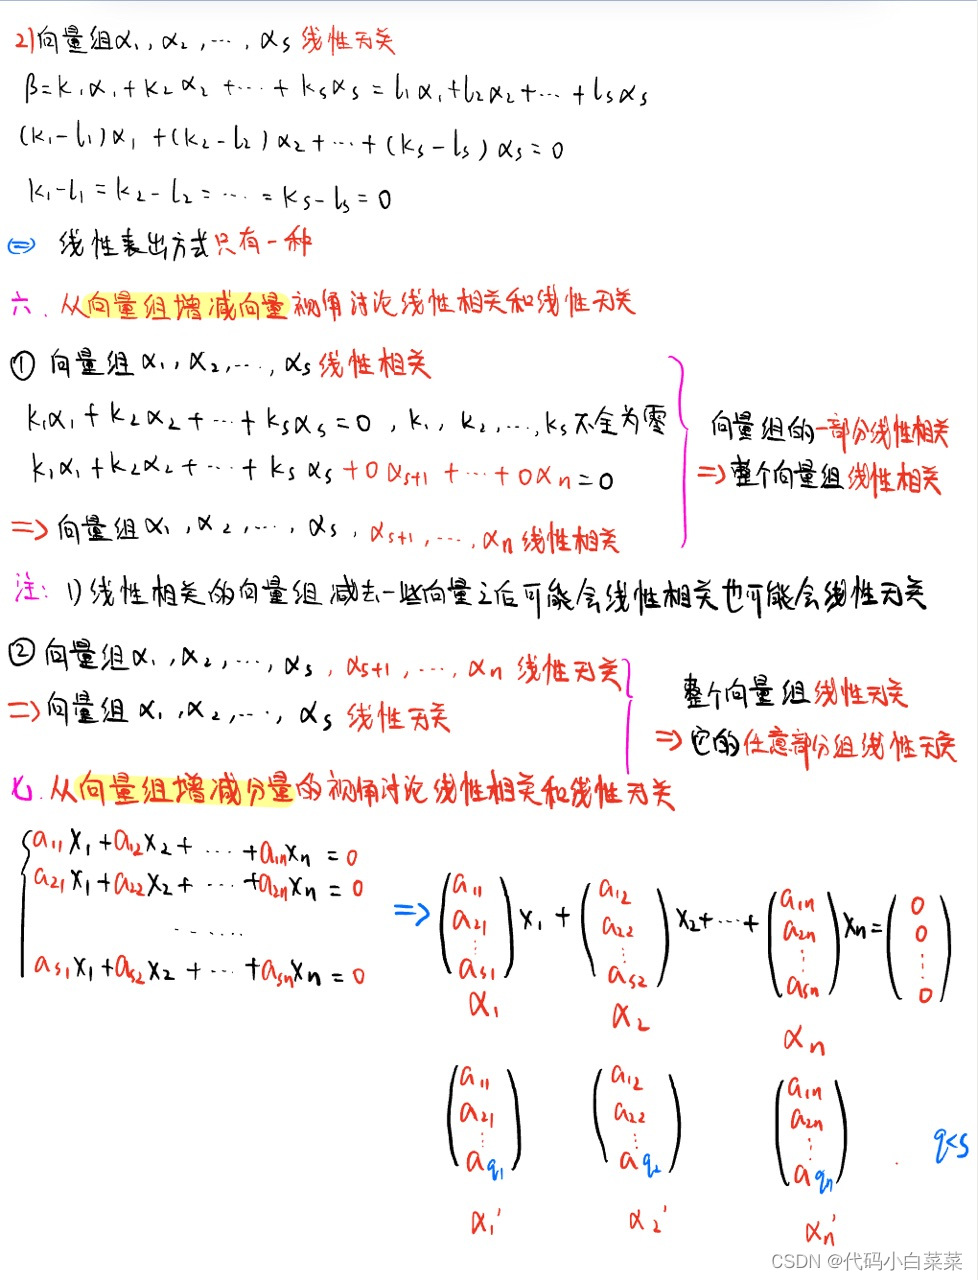 2)向量组α₁,α₂,…,αs 线性无关
β=k₁α₁+k₂α₂+…+ksαs=l₁α₁+l₂α₂+…+lsαs
(k₁-l₁)α₁+(k₂-l₂)α₂+…+(ks-ls)αs=0
k₁-l₁=k₂-l₂=…=ks-ls=0
⇔ 线性表出方式只有一种
六. 从向量组增减向量视角讨论线性相关和线性无关
① 向量组α₁,α₂,…,αs 线性相关
k₁α₁+k₂α₂+…+ksαs=0,k₁,k₂,…,ks不全为零
k₁α₁+k₂α₂+…+ksαs+0αs+1+…+0αn=0
⇒向量组α₁,α₂,…,αs,αs+1,…,αn线性相关
向量组的一部分线性相关
⇒整个向量组线性相关
注: 1)线性相关的向量组减去一些向量之后可能会线性相关也可能会线性无关
② 向量组α₁,α₂,…,αs,αs+1,…,αn 线性无关
⇒向量组α₁,α₂,…,αs 线性无关
整个向量组线性无关
⇒它的任意部分组线性无关
七.从向量组增减分量的视角讨论线性相关和线性无关
a₁₁x₁+a₁₂x₂+…+a₁nxn=0
a₂₁x₁+a₂₂x₂+…+a₂nxn=0
……
as₁x₁+as₂x₂+…+asnxn=0
⇒ (a₁₁ a₂₁ ⋮ as₁)x₁+(a₁₂ a₂₂ ⋮ as₂)x₂+…+(a₁n a₂n ⋮ asn)xn=(0 0 ⋮ 0)
α₁ α₂ αn
(a₁₁ a₂₁ ⋮ aq₁) (a₁₂ a₂₂ ⋮ aq₂) (a₁n a₂n ⋮ aqn) q<s
α₁' α₂' αn'
CSDN @代码小白菜菜